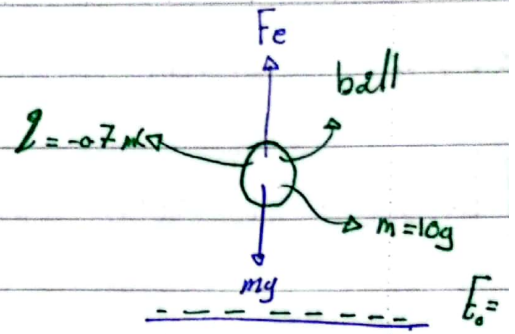 Fe
ball
q = -0.7 μC
m = 10g
mg
E₀ =